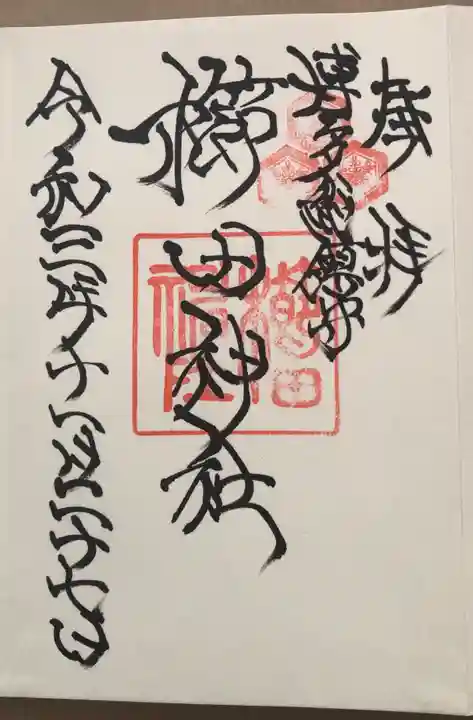 奉拝
博多総鎮守
櫛田神社
櫛田
神社
令和三年十月日